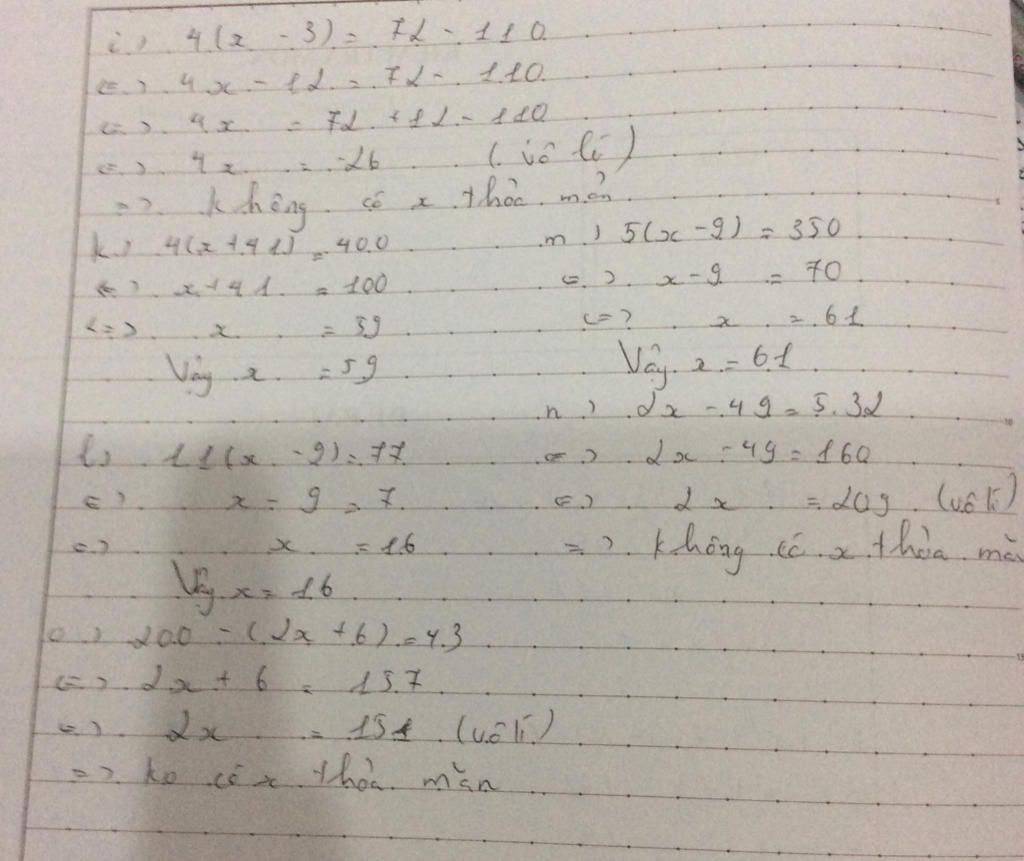 i) 4(x - 3) = 72 - 110
<=> 4x - 12 = 72 - 110
<=> 4x = 72 + 12 - 110
<=> 4x = -26 (vô lí)
=> Không có x thỏa mãn
k) 4(x + 41) = 400
<=> x + 41 = 100
<=> x = 59
Vậy x = 59
l) 11(x - 9) = 77
<=> x - 9 = 7
=> x = 16
Vậy x = 16
m) 5(x - 9) = 350
<=> x - 9 = 70
<=> x = 61
Vậy x = 61
n) 2x - 49 = 5.32
<=> 2x - 49 = 160
<=> 2x = 209 (vô lí)
=> Không có x thỏa mãn
o) 200 - (2x + 6) = 43
<=> 2x + 6 = 157
<=> 2x = 151 (vô lí)
=> ko có x thỏa mãn